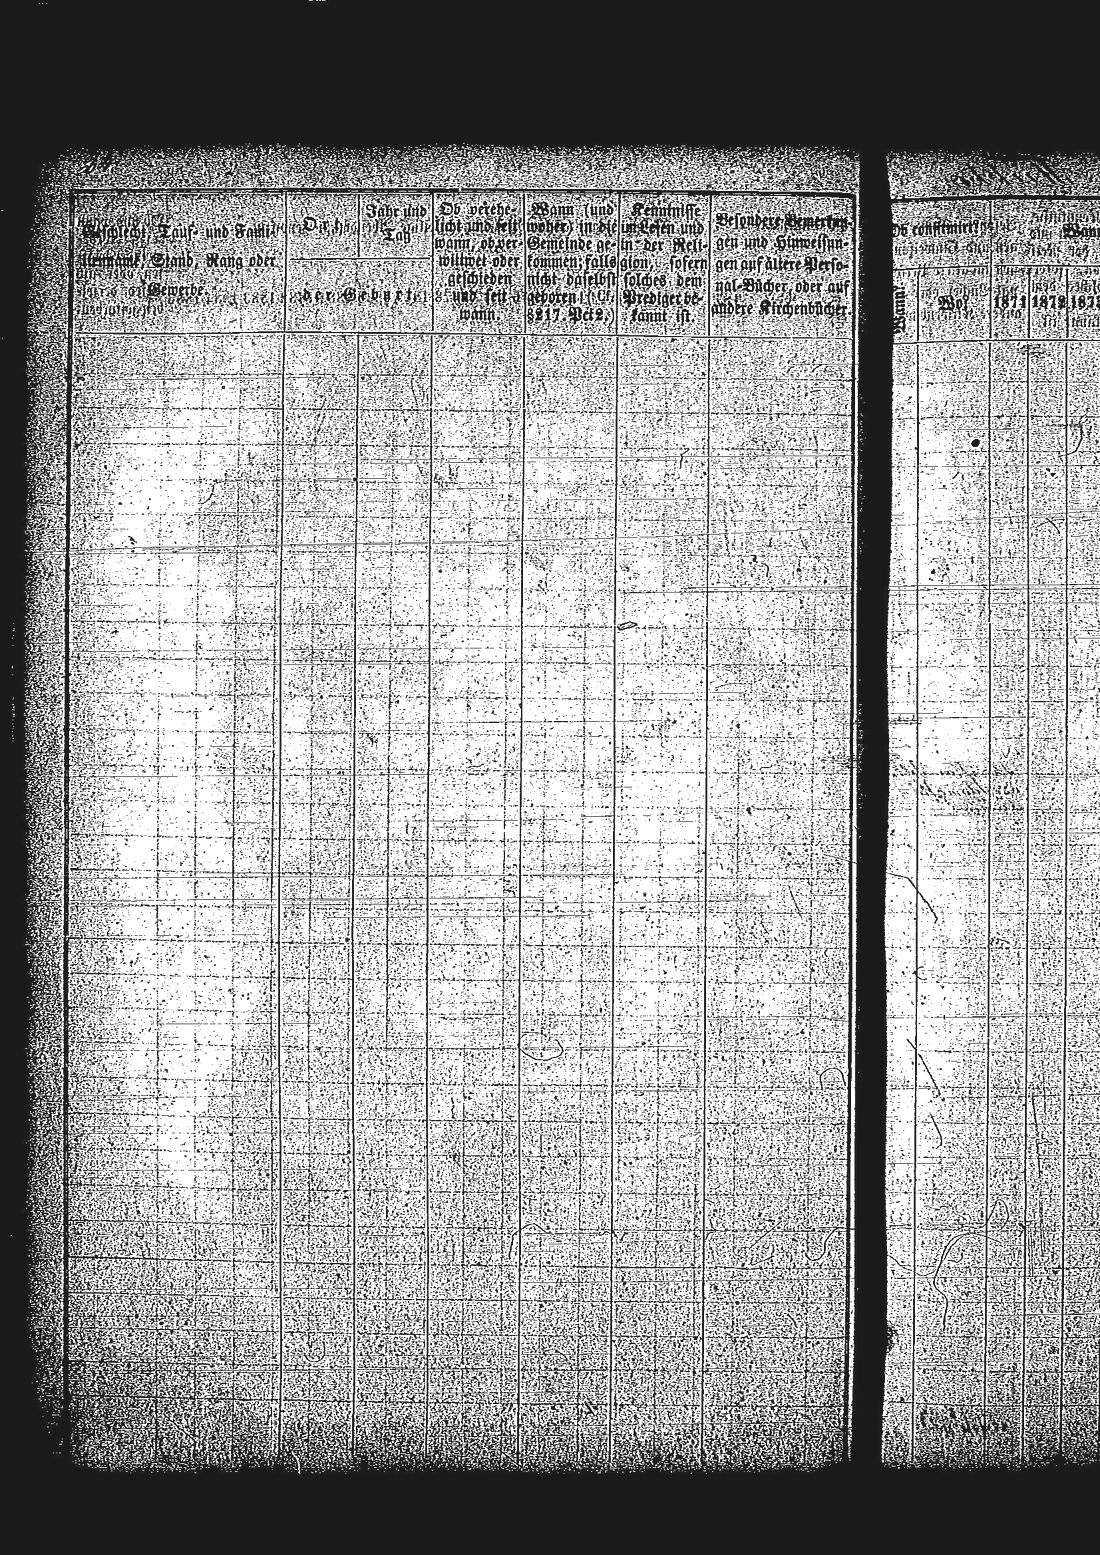 Geschlecht, Tauf- und Fami-
liennamen, Stand, Rang oder
Gewerbe.
Ort
Jahr und
Tag
der Geburt.
Ob verehe-
licht und seit
wann, ob ver-
wittwet oder
geschieden
und seit
wann.
Wann (und
woher) in die
Gemeinde ge-
kommen; falls
nicht daselbst
geboren. (Cf.
§ 217. Pct 2.)
Kenntnisse
im Lesen und
in der Reli-
gion, sofern
solches dem
Prediger be-
kannt ist.
Besondere Bemerkun-
gen und Hinweisun-
gen auf ältere Perso-
nal-Bücher, oder auf
andere Kirchenbücher.
Ob confirmirt
Wann?
Wo?
Wann
1871
1872
1873